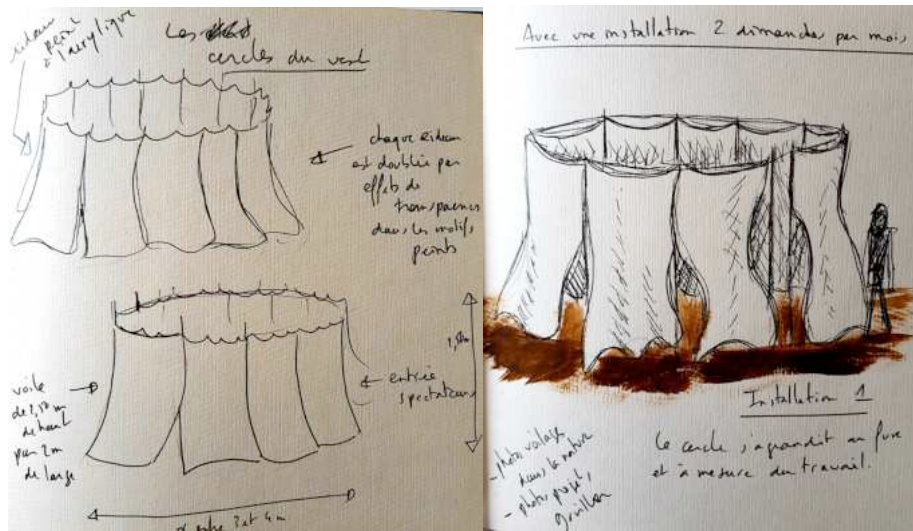 rideau
peint
à l'acrylique
Les
cercles du vent
chaque rideau
est doublée par
effets de
transparence
dans les motifs
peints
voile
de 2,50 m
de haut
par 2m
de large
entrée
spectateurs
entre 3 et 4m
Avec une installation 2 dimanches par mois
Installation 1
Le cercle s'agrandit au fure
et à mesure du travail.
- photo voilages
dans la nature
- photo, projet,